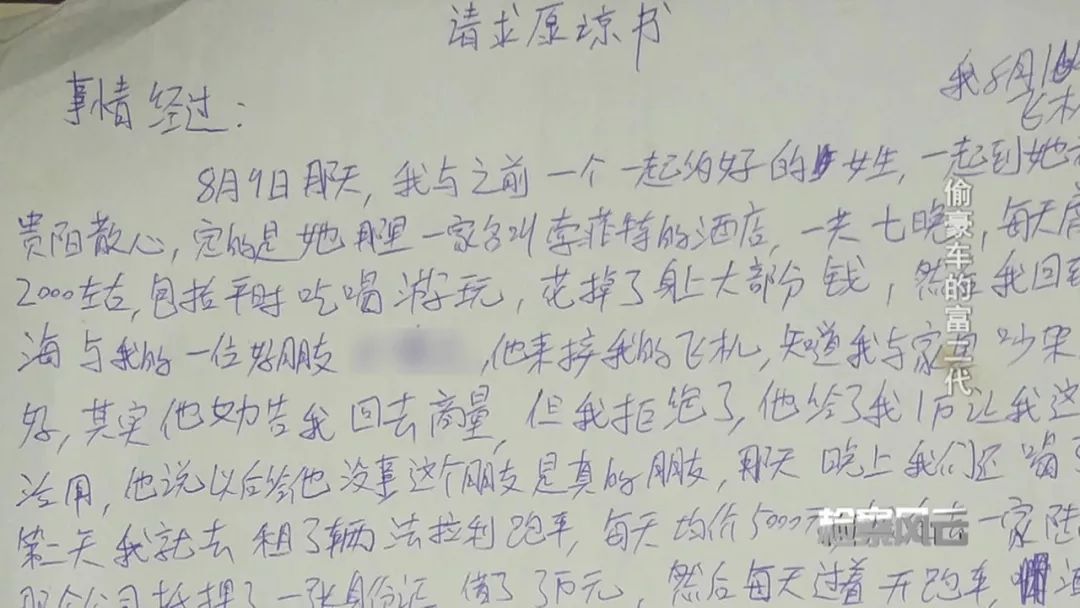 请求原谅书
我8月1
飞机
事情经过：
8月9日那天，我与之前一个一起约好的女生，一起到她
贵阳散心，定的是她那里一家名叫索菲特的酒店，一共七晚，每天
2000左右，包括平时吃喝游玩，花掉了身上大部分钱，然后我回到
海与我的一位好朋友，他来接我的飞机，知道我与家里吵架
好，其实他劝告我回去商量，但我拒绝了，他给了我1万让我这
活用，他说以后给他没事这个朋友是真的朋友，那天晚上我们还喝了
第二天我就去租了辆法拉利跑车，每天均价5000元 一家陆
那个公司抵押了一张身份证借了3万元，然后每天过着开跑车 酒
偷豪车的富二代
检察风云